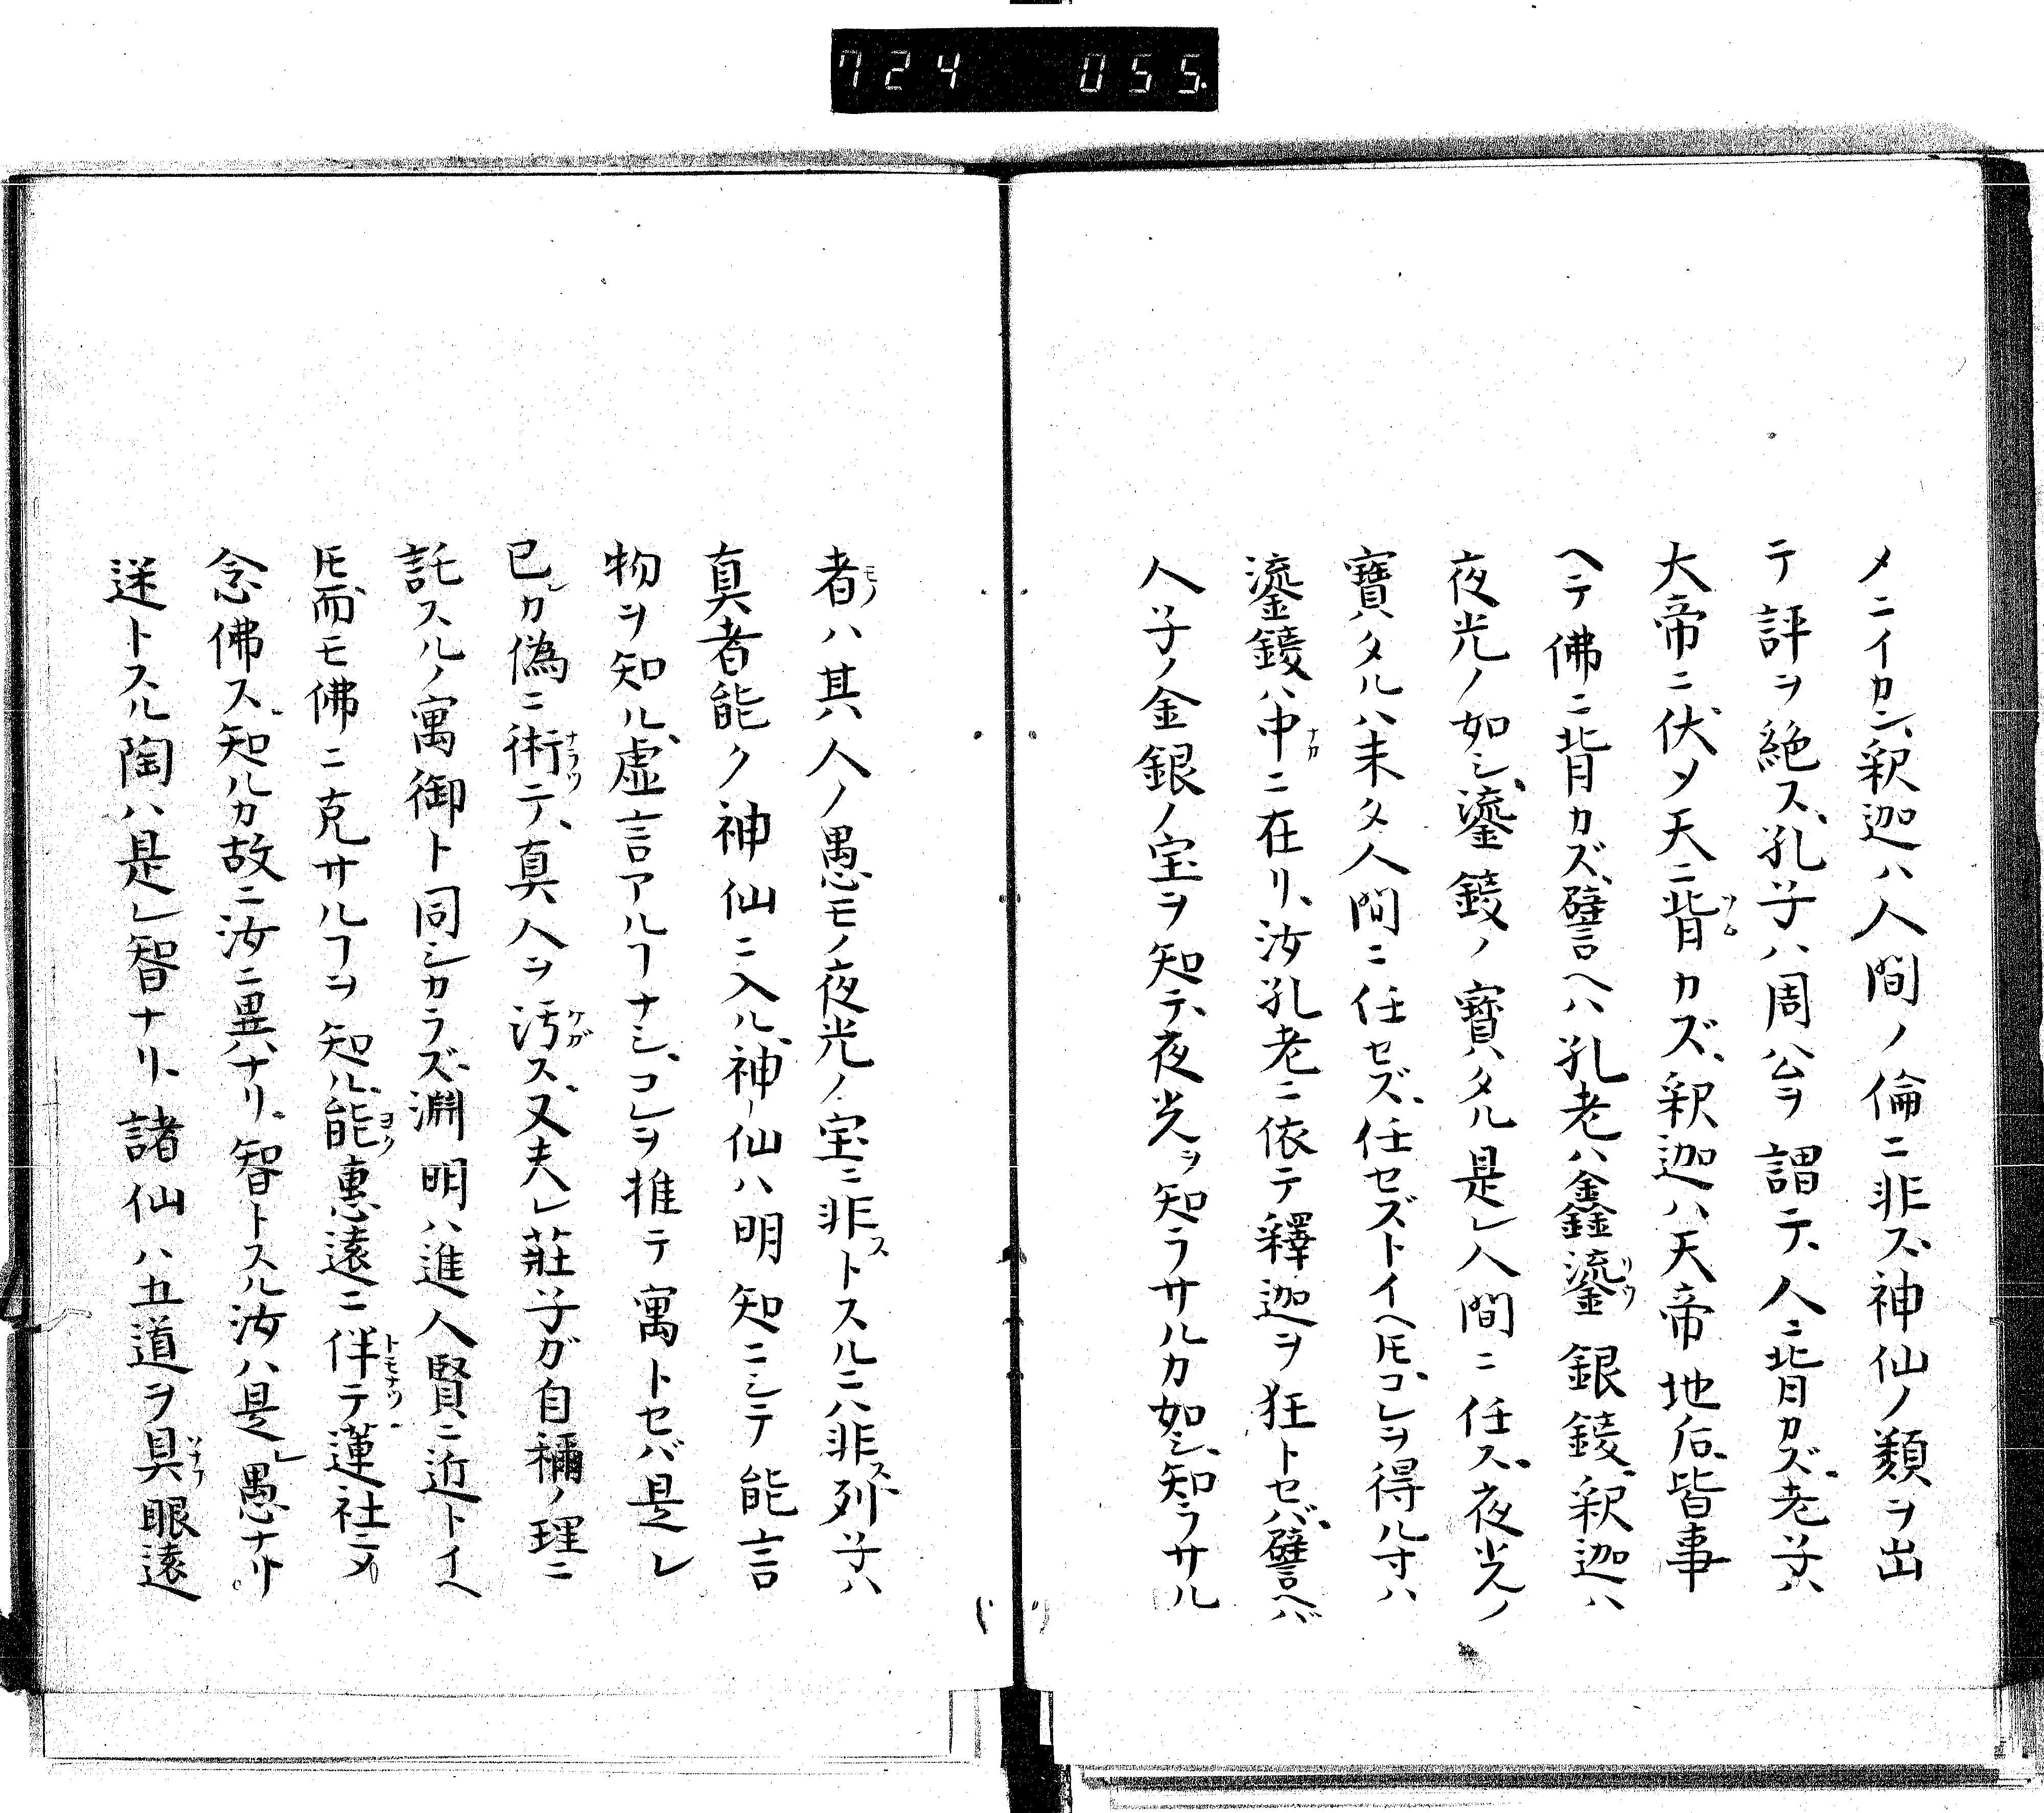 724 055
メニイカン、釈迦ハ人間ノ倫ニ非ズ、神仙ノ類ヲ出
テ評ヲ絶ス、孔子ハ周公ヲ謂テ、人ニ背カズ、老子ハ
大帝ニ伏ソ天ニ背カズ、釈迦ハ天帝地后、皆事
ヘテ佛ニ背カズ、譬言ヘハ孔老ハ鑫鎏銀錂、釈迦ハ
夜光ノ如シ、鎏錂ノ寶タル是レ人間ニ任ス、夜光ノ
寶タルハ未タ人間ニ任セズ、任セズトイヘ𪜈、コレヲ得ル寸ハ
鎏錂ハ中ニ在リ、汝孔老ニ依テ釋迦ヲ狂トセバ、譬言ヘバ
人子ノ金銀ノ宝ヲ知テ、夜光ヲ知ラサルカ如シ、知ラサル
者ハ其人ノ愚モノ夜光ノ宝ニ非トスルニハ非ス、列子ハ
真者能ク神仙ニ入ル、神仙ハ明知ニシテ能言
物ヲ知ル、虚言アルヿナシ、コレヲ推テ寓トセバ是レ
已レカ偽ニ術テ、真人ヲ汚ス、又夫レ莊子ガ自禰ノ理ニ
託スルノ寓御ト同シカラズ、淵明ハ進人賢ニ近トイヘ
𪜈、而モ佛ニ克サルヿヲ知ル、能惠遠ニ伴テ蓮社ニ
念佛ス、知ルカ故ニ汝ニ異ナリ、智トスル汝ハ是レ愚ナリ
迷トスル陶ハ是レ智ナリ、諸仙ハ五道ヲ具眼遠